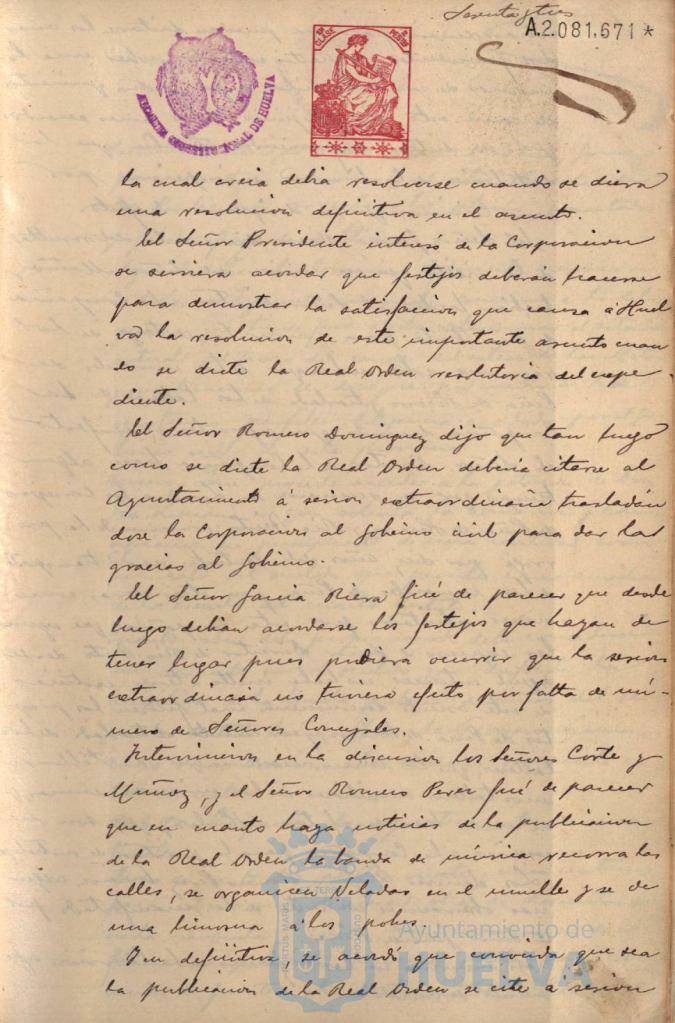 Sesenta y tres
A.2.081.671 *
1ª CLASE PESETA
AYUNTAMIENTO CONSTITUCIONAL DE HUELVA
la cual creia debia resolverse cuando se diera
una resolucion definitiva en el asunto.
El Señor Presidente interesó de la Corporacion
se sirviera acordar que festejos deberán hacerse
para demostrar la satisfaccion que causa á Huel
va la resolucion de este importante asunto cuan
do se dicte la Real Orden resolutoria del espe-
diente.
El Señor Romero Dominguez dijo que tan luego
como se dicte la Real Orden deberia citarse al
Ayuntamiento á sesion extraordinaria trasladán
dose la Corporacion al Gobierno civil para dar las
gracias al Gobierno.
El Señor Garcia Riera fué de parecer que desde
luego debian acordarse los festejos que hayan de
tener lugar pues pudiera ocurrir que la sesion
extraordinaria no tuviera efecto por falta de nú-
mero de Señores Concejales.
Intervinieron en la discusion los Señores Corte y
Muñoz, y el Señor Romero Perez fué de parecer
que en cuanto haya noticias de la publicacion
de la Real Orden la banda de música recorra las
calles, se organicen Veladas en el muelle y se de
una limosna á los pobres.
Y en definitiva, se acordó que conocida que sea
la publicacion de la Real Orden se cite á sesion
Ayuntamiento de
HUELVA